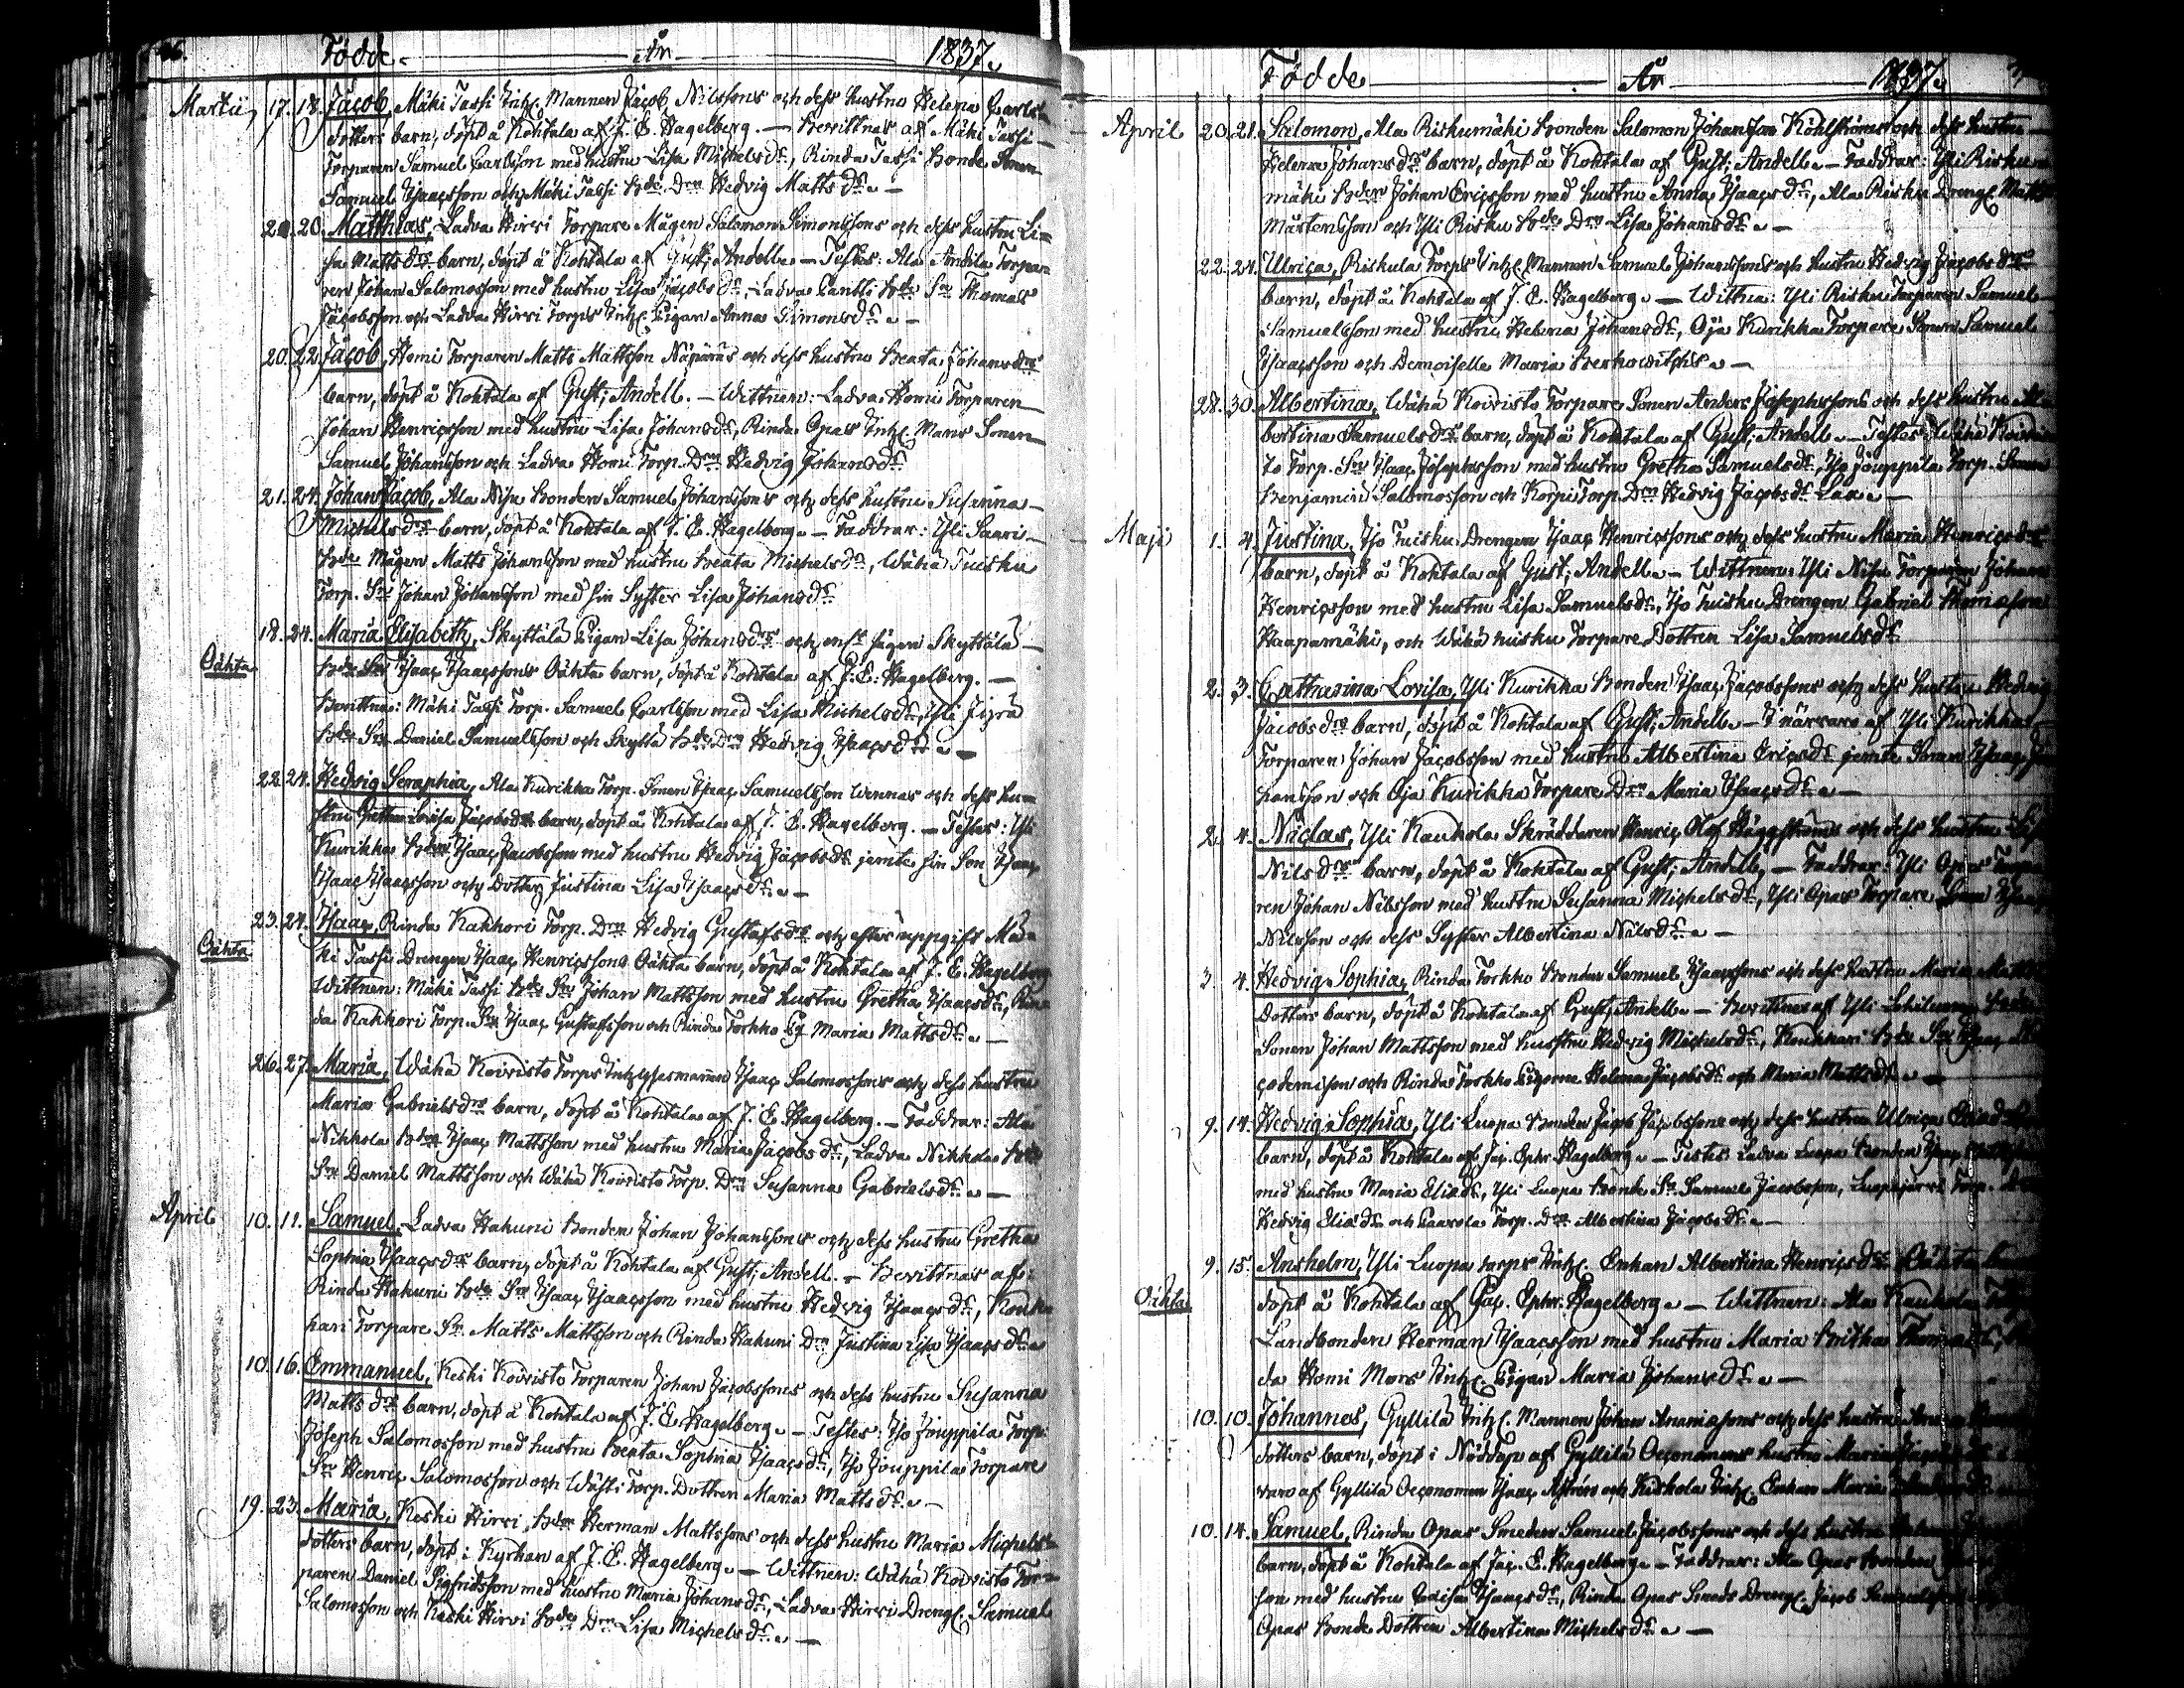 Födde År 1837.
Martii 17. 18. Jacob, Mäki Tassi Inh. Mannen Jacob Nilssons och dess hustru Helena Carls
dotters barn, döpt å Kohtala af J. E. Hagelberg. — Bevittnas af Mäki Tassi
Torparen Samuel Carlsson med hustru Lisa Michelsdr, Rinda Tassi Bonde Sonen
Samuel Isaacsson och Mäki Tassi Bde Drn Hedvig Matts dr. —
20. 20. Matthias, Ladva Hirvi Torpare Mågen Salomon Simonssons och dess hustru Li=
sa Matts drs barn, döpt å Kohtala af Gust; Andell. — Testes: Ala Torpa
ren Johan Salomosson med hustru Lisa Jacobs dr, Ladva Bde Sn Thomas
Jacobsson och Ladva Hirvi Torps Inh. Pigan Anna Simonsdr. —
20. 22. Jacob, Homi Torparen Matts Mattsson och dess hustru Beata Johansdrs
barn, döpt å Kohtala af Gust; Andell. — Wittnen: Ladva Homi Torparen
Johan Henricsson med hustru Lisa Johansdr, Rinda Opas Inh. Mans Sonen
Samuel Johansson och Ladva Homi Torp. Drn Hedvig Johansdr.
21. 24. Johan Jacob, Ala Nisu Bonden Samuel Johanssons och dess hustru Susanna
Michelsdrs barn, döpt å Kohtala af J. E. Hagelberg. — Faddrar: Yli Saari
Bde Mågen Matts Johansson med hustru Beata Michelsdr, Wähä Tuisku
Torp. Sn Johan Johansson med sin Syster Lisa Johansdr.
18. 24. Maria Elisabeth, Skyttälä Pigan Lisa Johansdrs och enl. sägen Skyttälä
Oächta Bde Sn Isaac Isaacssons Oächta barn, döpt å Kohtala af J. E. Hagelberg. —
Bevittna: Mäki Tassi Torp. Samuel Carlsson med Lisa Michelsdr, Yli Jyrä
Bde Sn Daniel Samuelsson och Skyttä Bde Drn Hedvig Isaacsdr. —
22. 24. Hedvig Seraphia, Ala Kurikka Torp. Sonen Isaac Samuelsson Wennas och dess hu=
stru Gretha Lovisa Jacobsdrs barn, döpt å Kohtala af J. E. Hagelberg. — Testes: Yli
Kurikka Bden Isaac Jacobsson med hustru Hedvig Jacobsdr jemte sin Son Isaac
Isaac Isaacsson och Dotter Justina Lisa Isaacsdr. —
23. 24. Isaac, Rinda Kakkori Torp. Drn Hedvig Gustafsdrs och efter uppgift Mä=
Oächta ki Tassi Drengen Isaac Henricssons Oächta barn, döpt å Kohtala af J. E. Hagelberg
Wittnen: Mäki Tassi Bde Sn Johan Mattsson med hustru Gretha Isaacsdr, Rin=
da Kakkori Torp. Sn Isaac Gustafsson och Rinda Torkko Pig Maria Mattsdr. —
26. 27. Maria, Wähä Koivisto Torps Inhysesmannen Isaac Salomossons och dess hustru
Maria Gabrielsdrs barn, döpt å Kohtala af J. E. Hagelberg. — Faddrar: Ala
Nikkola Bden Isaac Mattsson med hustru Maria Jacobsdr, Ladva Nikkola Bde
Sn Daniel Mattsson och Wähä Koivisto Torp. Drn Susanna Gabrielsdr. —
April 10. 11. Samuel, Ladva Hakuni Bonden Johan Johanssons och dess hustru Gretha
Sophia Isaacsdrs barn, döpt å Kohtala af Gust; Andell. — Bevittnas af:
Rinda Hakuni Bde Sn Isaac Isaacsson med hustru Hedvig Isaacsdr, Kouk=
kari Torpare Sn Matts Mattsson och Rinda Hakuni Drn Justina Lisa Isaacsdr.
10. 16. Emmanuel, Keski Koivisto Torparen Johan Jacobssons och dess hustru Susanna
Matts drs barn, döpt å Kohtala af J. E. Hagelberg. — Testes: Iso Jouppila Torp.
Joseph Salomosson med hustru Beata Sophia Isaacsdr, Iso Jouppila Torpare
Sn Henric Salomosson och Torp. Dottren Maria Mattsdr. —
19. 23. Maria, Keski Hirvi Bden Herman Mattssons och dess hustru Maria Michels=
dotters barn, döpt i Kyrkan af J. E. Hagelberg. — Wittnen: Wähä Koivisto Tor=
paren Daniel Sigfridsson med hustru Maria Johansdr, Ladva Hirvi Dreng. Samuel
Salomosson och Keski Hirvi Bde Drn Lisa Michelsdr. —
Födde År 1837.
April 20. 21. Salomon, Ala Riskumäki Bonden Salomon Johansson Kohlströms och dess hustru
Helena Johansdrs barn, döpt å Kohtala af Gust; Andell. — Faddrar: Yli Risku
mäki Bden Johan Ericsson med hustru Anna Isaacsdr, Ala Risku Drengen Matts
Mårtensson och Yli Risku Bde Drn Lisa Johansdr. —
22. 24. Ulrica, Riskula Torps Inh. Mannen Samuel Johanssons och hustru Hedvig Jacobsdrs
barn, döpt å Kohtala af J. E. Hagelberg. — Wittna: Yli Risku Torparen Samuel
Samuelsson med hustru Helena Johansdr, Oja Kurikka Torpare Sonen Samuel
Isaacsson och Demoiselle Maria Berkowitsch. —
28. 30. Albertina, Wähä Koivisto Torpare Sonen Anders Josephssons och dess hustru Al
bertina Samuelsdrs barn, döpt å Kohtala af Gust; Andell. — Testes: Wähä Koivis
to Torp. Sn Isaac Josephsson med hustru Gretha Samuelsdr, Iso Jouppila Torp. Sonen
Benjamin Salomosson och Korpi Torp. Drn Hedvig Jacobsdr —
Maji 1. 4. Justina, Iso Tuisku Drengen Isaac Henricssons och dess hustru Maria Henricsdrs
barn, döpt å Kohtala af Gust; Andell. — Wittnen: Yli Nisu Torparen Johan
Henricsson med hustru Lisa Samuelsdr, Iso Tuisku Drengen Gabriel Thomasson
Haapamäki, och Wähä Tuisku Torpare Dottren Lisa Samuelsdr.
2. 3. Catharina Lovisa, Yli Kurikka Bonden Isaac Jacobssons och dess hustru Hedvig
Jacobsdrs barn, döpt å Kohtala af Gust; Andell. — I närvaro af Yli Kurikka
Torparen Johan Jacobsson med hustru Albertina Ericsdr jemte Sonen Isaac Jo
hansson och Oja Kurikka Torpare Drn Maria Isaacsdr. —
2. 4. Niclas, Yli Kauhola Skräddaren Henric Olof Häggströms och dess hustru
Nilsdrs barn, döpt å Kohtala af Gust; Andell, — Faddrar: Yli Opas Torpa
ren Johan Nilsson med hustru Susanna Michelsdr, Yli Opas Torpare Sonen Isaac
Nilsson och dess Syster Albertina Nilsdr. —
3. 4. Hedvig Sophia, Rinda Torkko Bonden Samuel Isaacssons och dess hustru Maria Matts
Dotters barn, döpt å Kohtala af Gust; Andell. — Bevittnas af Yli
Sonen Johan Mattsson med hustru Hedvig Michelsdr, Koukkari Bde Sn Isaac
och Rinda Torkko Pigorne Helena Jacobsdr och Maria Mattsdr. —
9. 14. Hedvig Sophia, Yli Luopa Bonden Jacob Jacobssons och dess hustru Ulrica
barn, döpt å Kohtala af Jac. Ephr. Hagelberg. — Testes: Ladva Luopa Bonden Isaac
med hustru Maria Eliædr, Yli Luopa Bonde Sn Samuel Jacobsson, Luopajärvi Torp.
Hedvig Eliædr och Torp. Drn Albertina Jacobsdr. —
9. 15. Anshelm, Yli Luopa torps Inh. Enkan Albertina Henricsdrs Oächta
Oächta döpt å Kohtala af Jac. Ephr. Hagelberg. — Wittnen: Ala Kauhola
Landbonden Herman Isaacsson med hustru Maria Britha
da Homi Mors Inh. Pigan Maria Johansdr. —
10. 10. Johannes, Gyllilä Inh. Mannen Johan Ananiassons och dess hustru
dotters barn, döpt i Nöddop af Gyllilä Oeconomens hustru Maria
varo af Gyllilä Oeconomen Isaac och Kiskola Inh. Enkan Maria
10. 14. Samuel, Rinda Opas Smeden Samuel Jacobssons och dess hustru
barn, döpt å Kohtala af Jac. E. Hagelberg. — Faddrar: Ala Opas Bonden
son med hustru Isaacsdr, Rinda Opas Smeds Dreng. Jacob
Opas Bonde Dottren Albertina Michelsdr. —